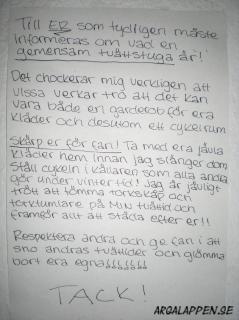 Till ER som tydligen måste
informeras om vad en
gemensam tvättstuga är!
Det chockerar mig verkligen att
vissa verkar tro att det kan
vara både en garderob för era
kläder och desutom ett cykelrum
Skärp er för fan! Ta med era jävla
kläder hem innan jag slänger dom
ställ cykeln i källaren som alla andra
gör under vintertid! Jag är jävligt
trött att tömma torkskåp och
torktumlare på MIN tvättid och
framför allt att städa efter er!!
Respektera andra och ge fan i att
sno andras tvättider och glömma
bort era egna!!!!!!!
TACK!
ARGALAPPEN.SE